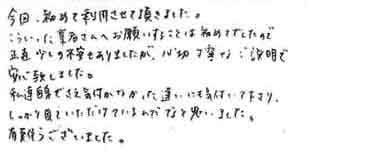 今回、初めて利用させて頂きました。
こういった業者さんへお願いすることは初めてでしたので
正直少しの不安もありましたが、親切丁寧なご説明で
安心致しました。
私達自身でさえ気付かなかった違いにも気付いて下さり、
しっかり見ていただけているんだなと思いました。
有難うございました。